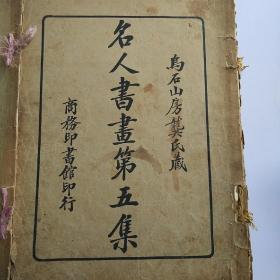 烏石山房龔氏藏
名人書畫第五集
商務印書館印行